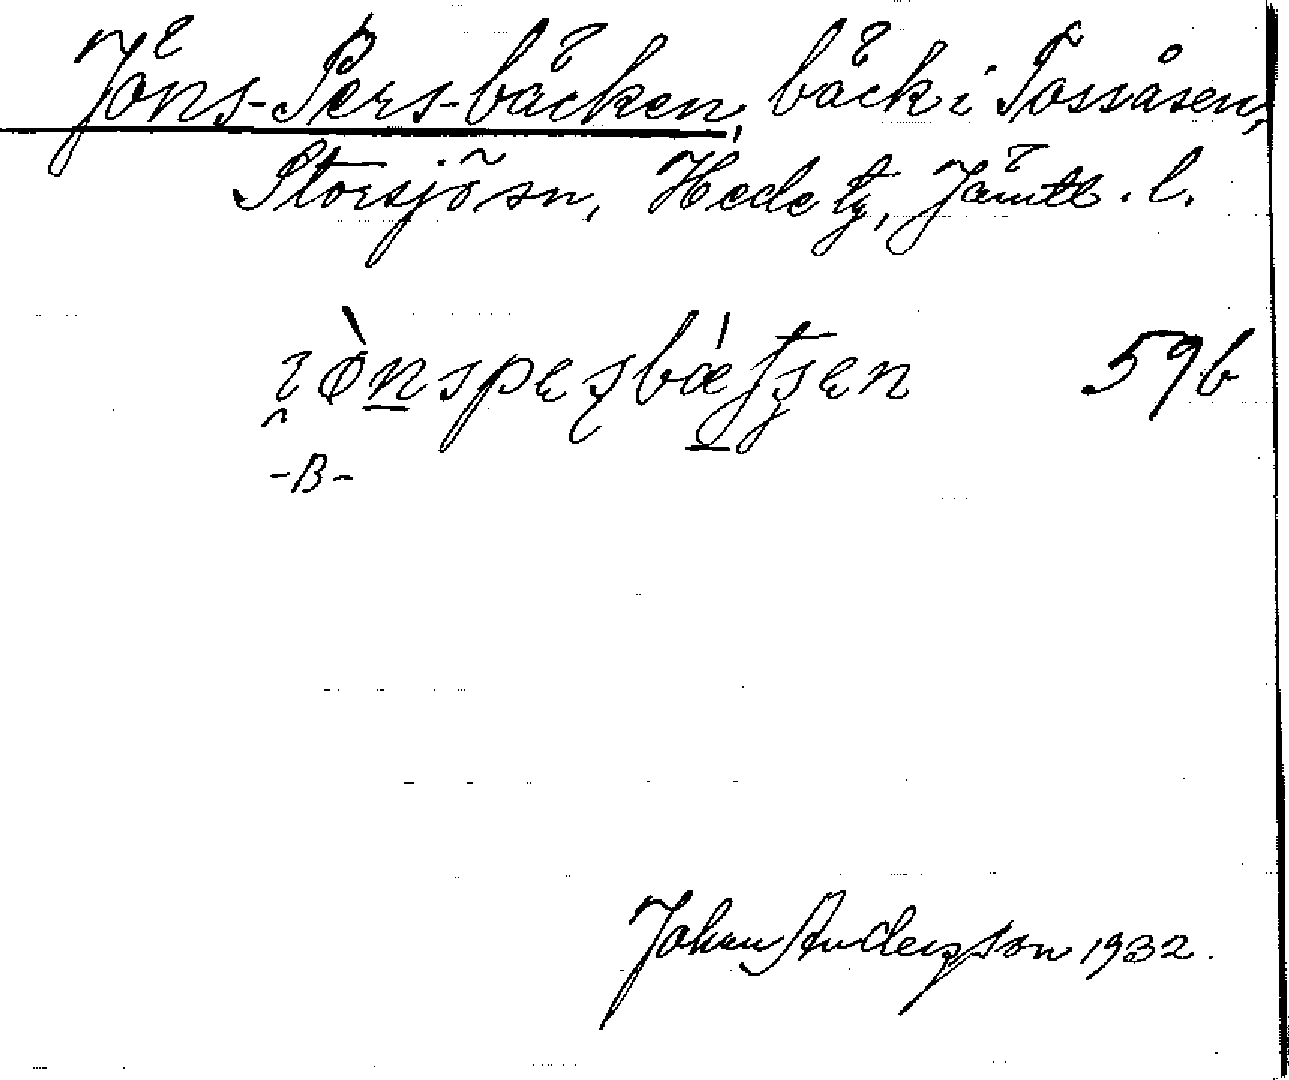 Jöns-Pers-bäcken, bäck i Tossåsen,
Storsjö sn, Hede tg, Jämtl. l.
59b
-B-
Johan Andersson 1932.